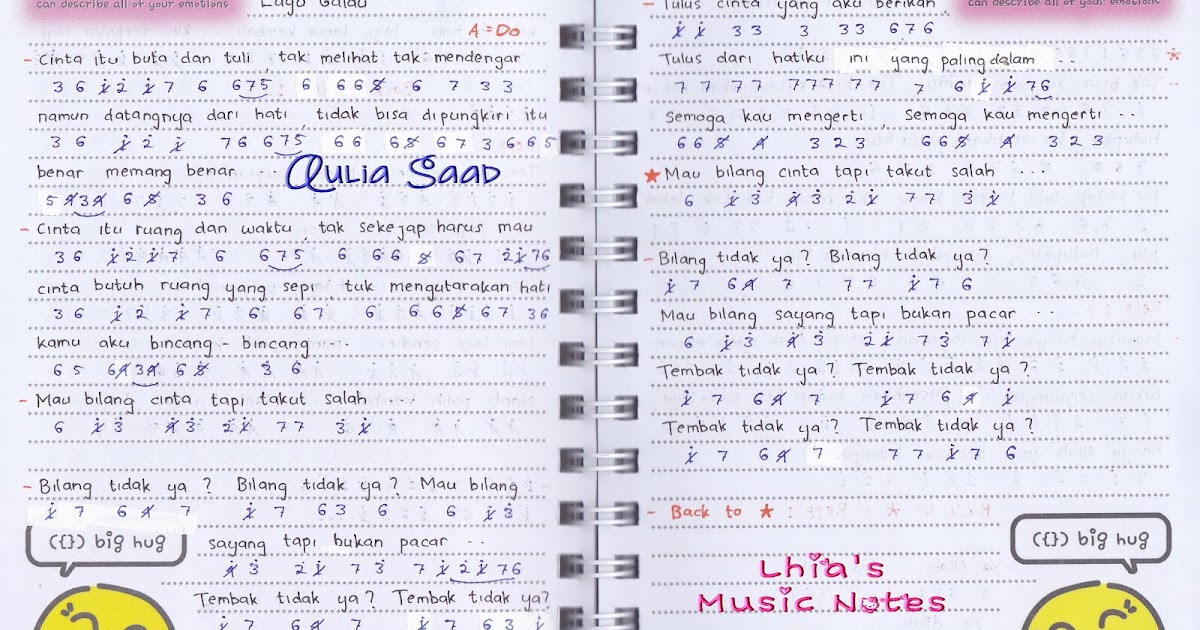 can describe all of your emotions
Lagu Galau
A = Do
- Cinta itu buta dan tuli tak melihat tak mendengar
3 6 1̇ 2̇ 1̇ 7 6 6 7 5 6 6 6 5 6 7 3 3
namun datangnya dari hati, tidak bisa dipungkiri itu
3 6 1̇ 2̇ 1̇ 7 6 6 7 5 6 6 6 5 6 7 3 6, 6 5
benar memang benar ...
5 4 3 4 6 5 3 6
Aulia Saad
- Cinta itu ruang dan waktu, tak sekejap harus mau
3 6 1̇ 2̇ 1̇ 7 6 6 7 5 6 6 6 5 6 7 2̇ 1̇ 7 6
cinta butuh ruang yang sepi, tuk mengutarakan hati
3 6 1̇ 2̇ 1̇ 7 6 6 7 6 6 6 5 6 7 3 6
kamu aku bincang - bincang ...
6 5 6 4 3 4 6 5 3 6
- Mau bilang cinta tapi takut salah ...
6 1̇ 3̇ 4̇ 3̇ 2̇ 1̇ 7 7 3 1̇
- Bilang tidak ya ? Bilang tidak ya ? Mau bilang
1̇ 7 6 4 7 1̇ 7 6 3 6 6 1̇ 3̇
({}) big hug
sayang tapi bukan pacar ..
4̇ 3̇ 2̇ 1̇ 7 3̇ 7 1̇ 2̇ 1̇ 7 6
Tembak tidak ya ? Tembak tidak ya?
1̇ 7 6 4 7 1̇ 7 6 3 1̇
can describe all of your emotions
- Tulus cinta yang aku berikan,
1̇ 1̇ 3 3 3 3 3 6 7 6
Tulus dari hatiku ini yang paling dalam .. *
7 7 7 7 7 7 7 7 7 7 6 1̇ 1̇ 7 6
Semoga kau mengerti Semoga kau mengerti ..
6 6 5 4 3 2 3 6 6 5 4 3 2 3
★ Mau bilang cinta tapi takut salah ...
6 1̇ 3̇ 4̇ 3̇ 2̇ 1̇ 7 7 3̇ 1̇
- Bilang tidak ya ? Bilang tidak ya ?
1̇ 7 6 4 7 7 7 1̇ 7 6
Mau bilang sayang tapi bukan pacar ..
6 1̇ 3̇ 4̇ 3̇ 2̇ 1̇ 7 3̇ 7 1̇
Tembak tidak ya ? Tembak tidak ya ?
1̇ 7 6 4 7 1̇ 7 6 4 1̇
Tembak tidak ya ? Tembak tidak ya ?
1̇ 7 6 4 7 7 7 1̇ 7 6
- Back to ★
({}) big hug
Lhia's
Music Notes